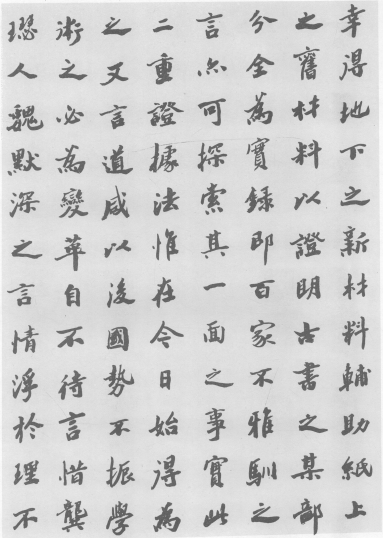 幸得地下之新材料輔助紙上
之舊材料以證明古書之某部
分全為實錄即百家不雅馴之
言亦可探索其一面之事實此
二重證據法惟在今日始得為
之又言道咸以後國勢不振學
術之必為變革自不待言惜龔
璱人魏默深之言情浮於理不